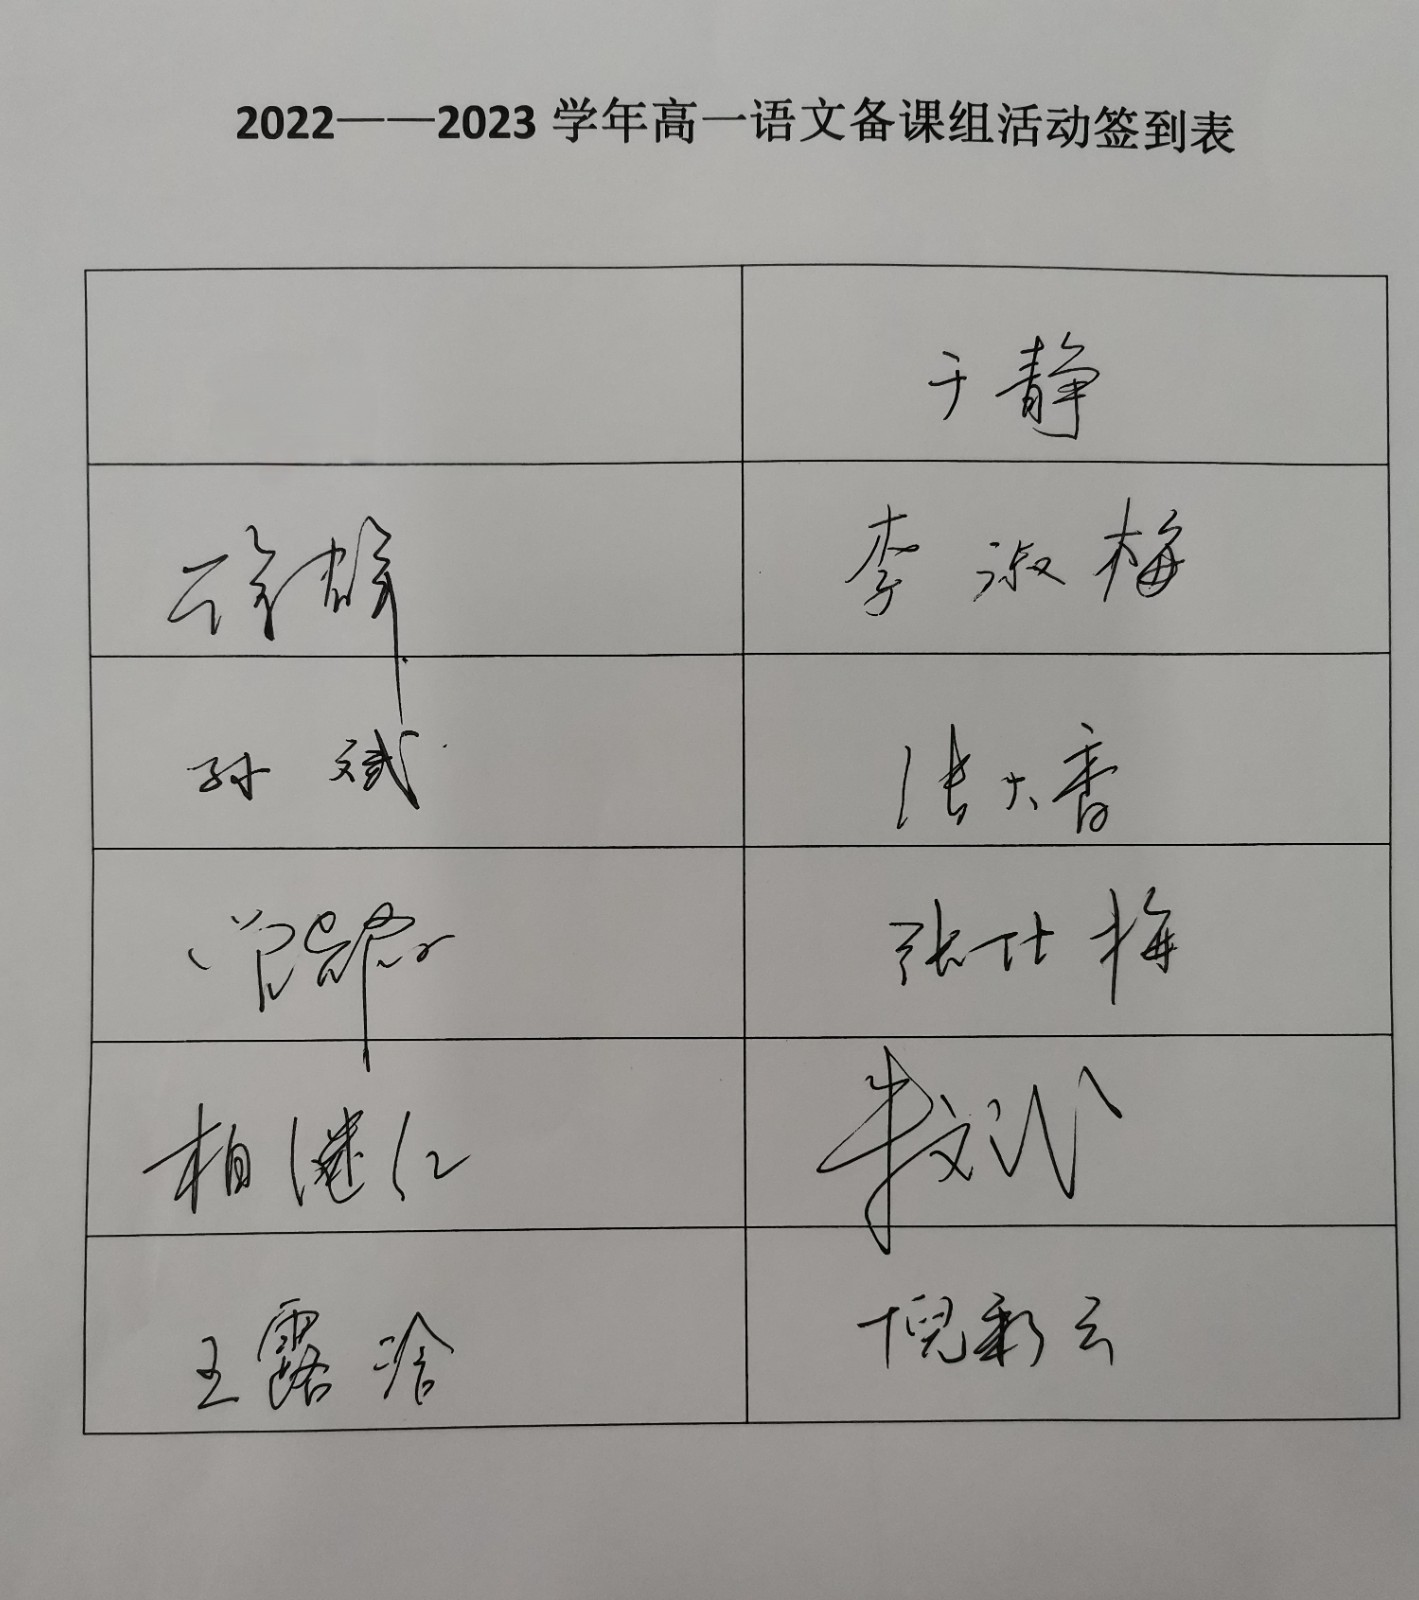 2022——2023 学年高一语文备课组活动签到表
于静
李淑梅
孙斌
张大香
张仕梅
柏继仁
朱文
王露浛
倪彩云